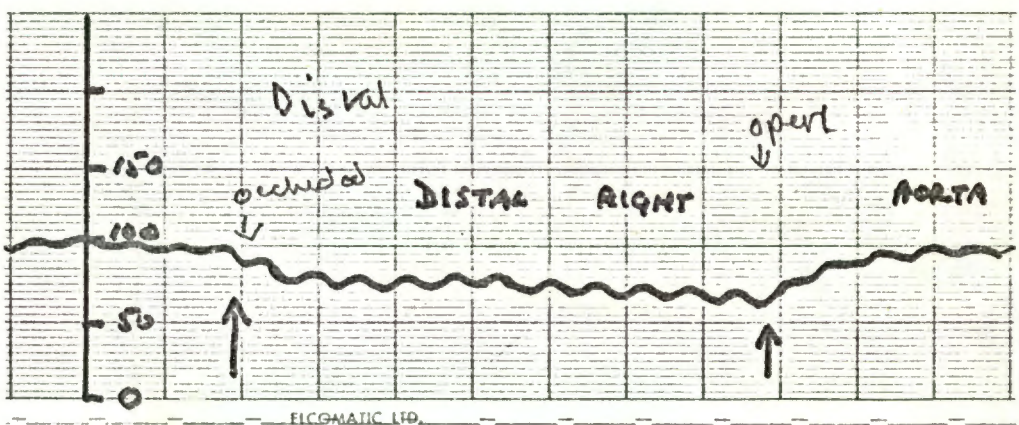 Distal
opent
150
occluded
DISTAL RIGHT AORTA
100
50
0
ELCOMATIC LTD.